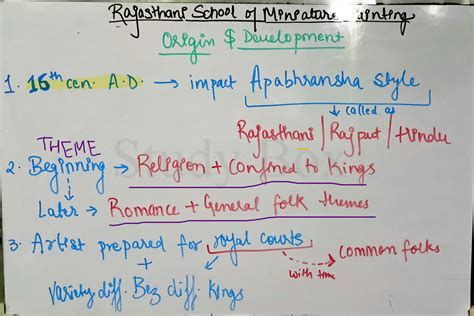 Rajasthani School of Miniature Painting
Origin & Development
1. 16th cen. A.D. → impact Apabhransha style
↓ called as
Rajasthani / Rajput / Hindu
THEME
2. Beginning → Religion + Confined to Kings
Later → Romance + General folk themes
3. Artist prepared for royal courts
with time
Common folks
+
Variety diff. Bez diff. Kings
Study Box